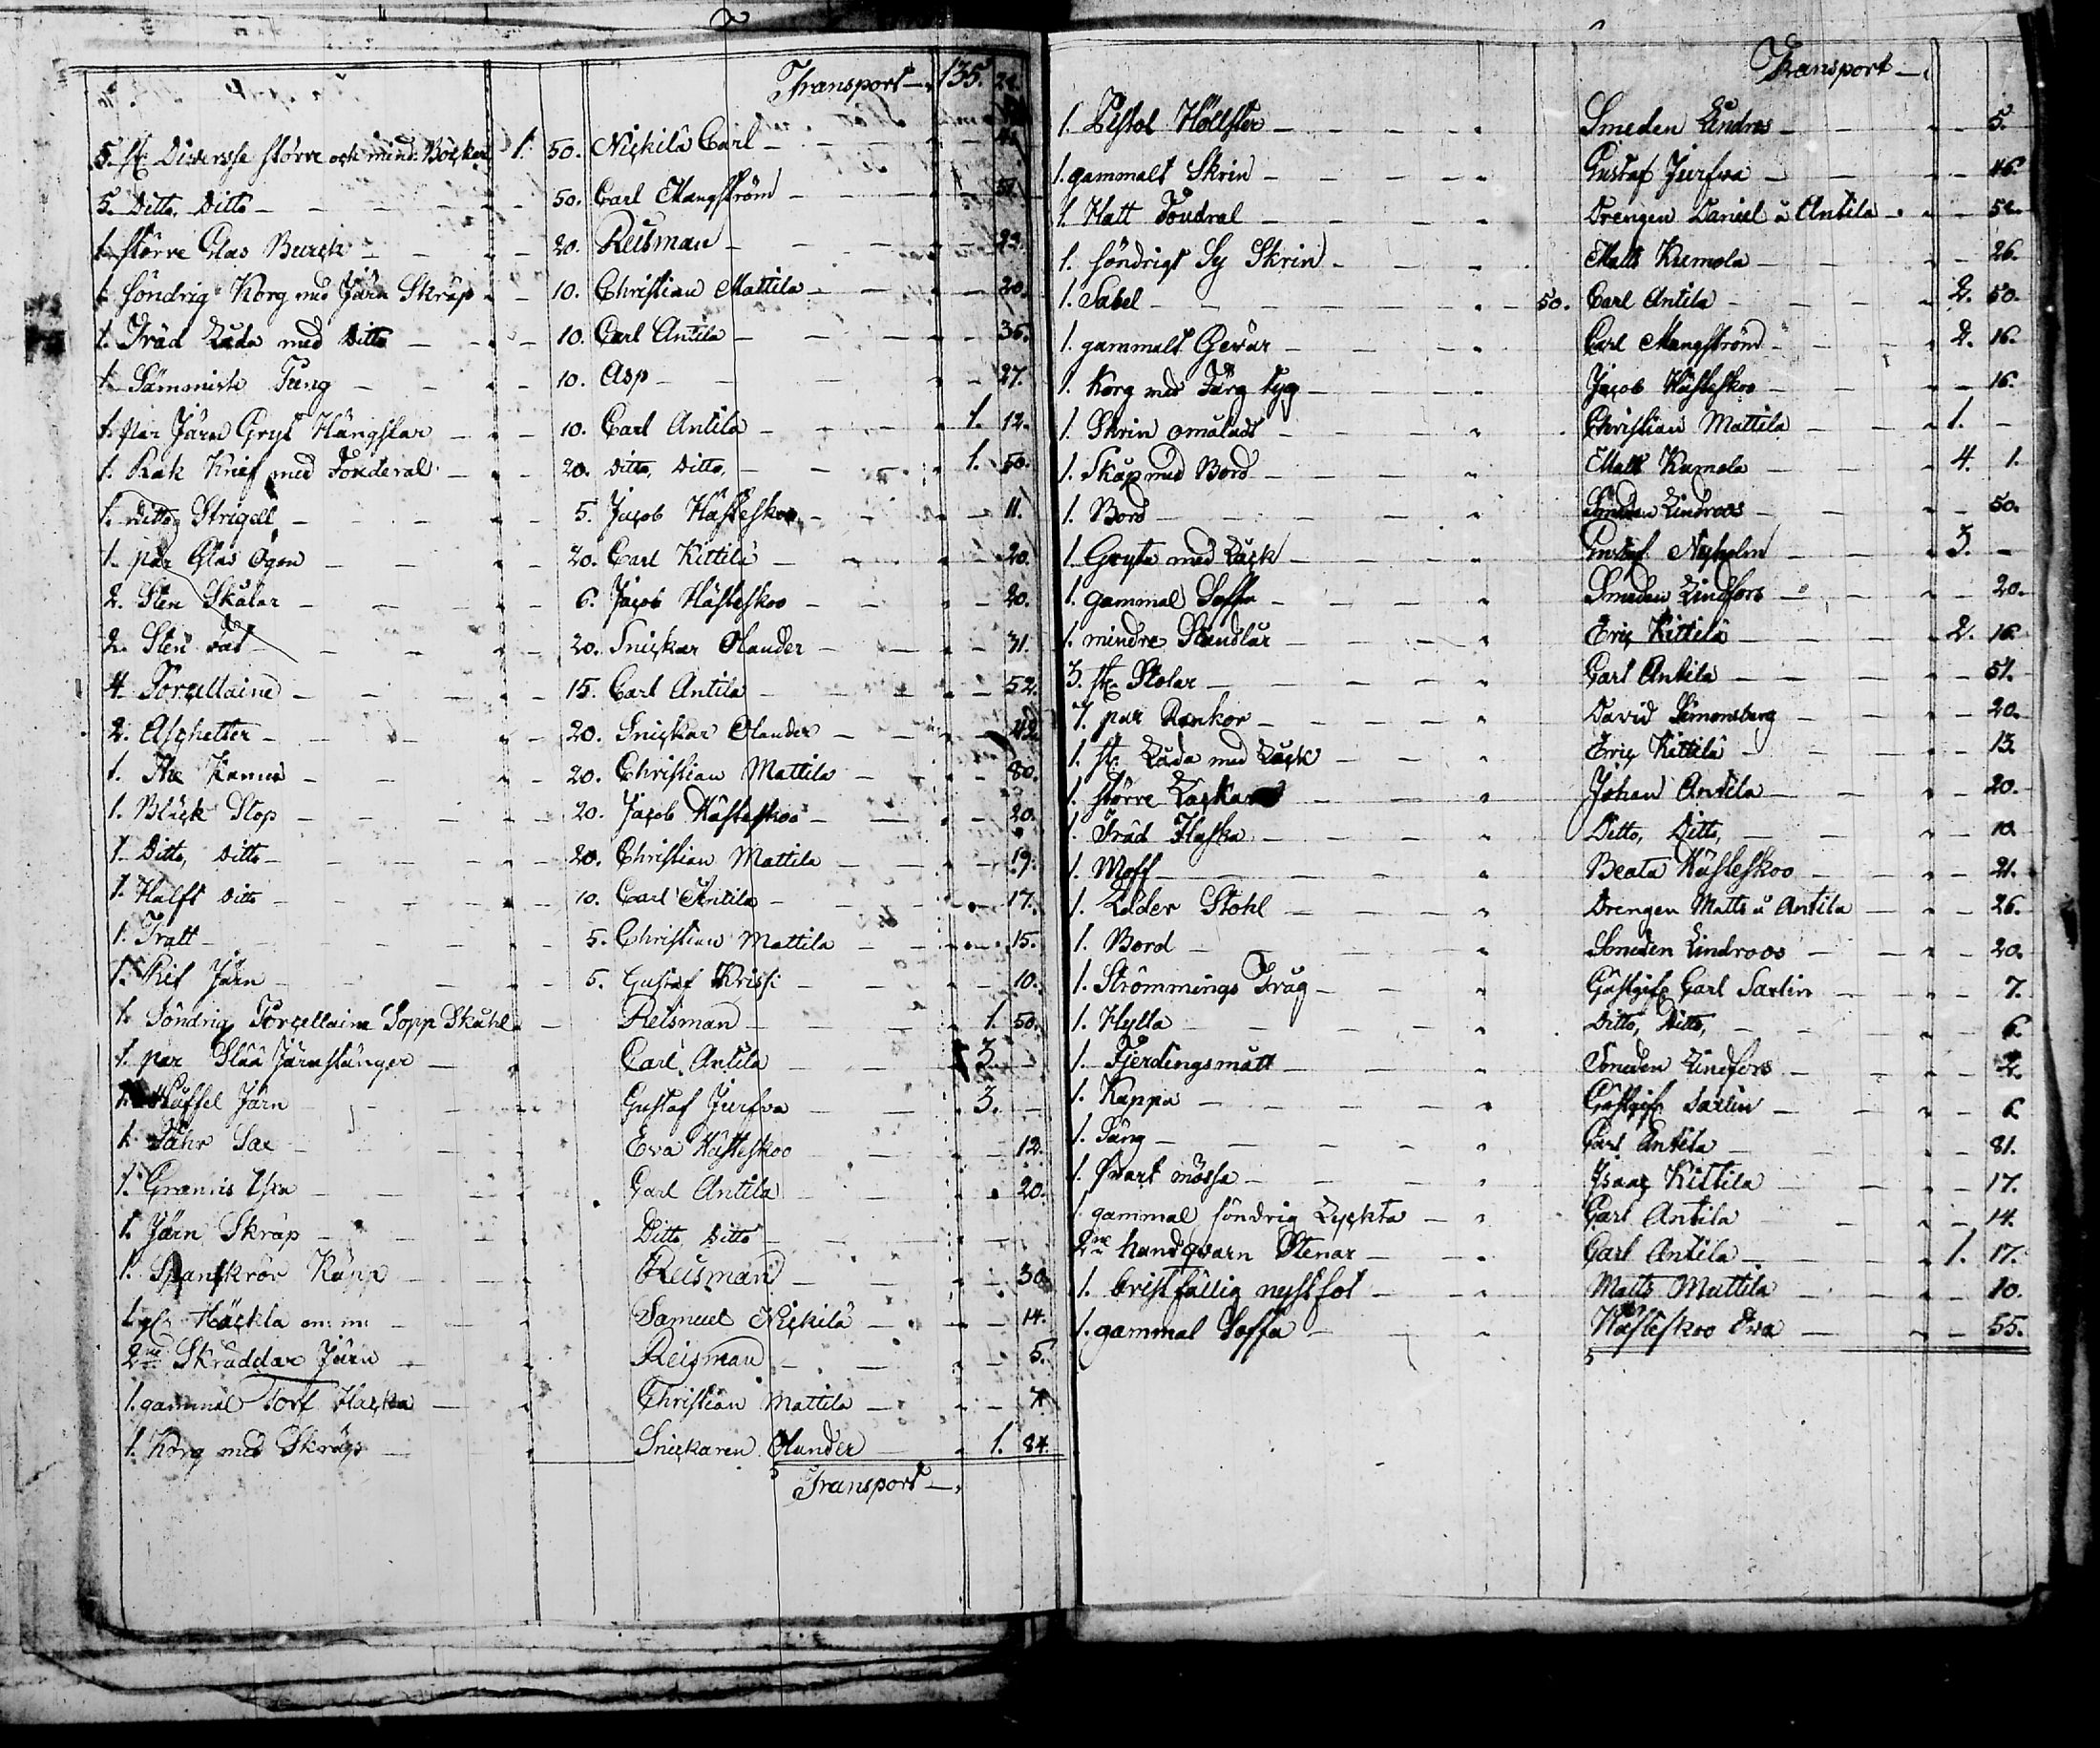 Transport 135. 24.
5. st. Diversse större och mind. Böcker 1. 50. Nickilä Carl
5. Ditto, Ditto 50. Carl Mangström 51.
1. större Glas Burck 20. Reisman 23.
1. söndrig Korg med Järn Skräp 10. Christian Mattila 20.
1. Träd Låda med Ditto 10. Carl Antila 36.
1. Dämmiste Tung 10. Asp 27.
1. par Järn Gryt Hängslar 10. Carl Antila 1. 12.
1. Rak Knif med Fonderal 20. Ditto, Ditto, 1. 50.
1. Ditto Strigell 5. Jacob Hästeskoo 11.
1. par Glas Ögon 20. Carl Kittilä 20.
2. Sten Skålar 6. Jacob Hästeskoo 20.
2. Sten Fat 20. Snickar Olander 31.
4. Porcellaine 15. Carl Antila 52.
2. Aschetter 20. Snickar Olander
1. The Kanna 20. Christian Mattila 80.
1. Bläck Stop 20. Jacob Hästeskoo 20.
1. Ditto, Ditto 20. Christian Mattila 19.
1. Halft Ditto 10. Carl Antila 17.
1. Tratt 5. Christian Mattila 15.
1. Rif Järn 5. Gustaf Krissi 10.
1. Söndrig Porcellaine Sopp Skåhl Reisman 1. 50.
1. par Slää Järnstänger Carl Antila 3.
1. Wåffel Järn Gustaf Jurfva 3.
1. Fåhr Sax Eva Hästeskoo 12.
1. Yxa Carl Antila 20.
1. Järn Skräp Ditto Ditto
1. Spanskrör Käpp Reisman 30.
1. Häckla m: m: Samuel Nickilä 14.
2ne Skräddar Järn Reisman 5.
1. gammal Torf Hacka Christian Mattila 7.
1. Korg med Skräp Snickaren Olander 1. 84.
Transport
Transport
1. Pistol Höllster Smeden Lindros 5.
1. gammalt Skrin Gustaf Jurfva 46.
1. Hatt Foudral Drengen Daniel å Antila 52.
1. söndrigt Sy Skrin Matts Kumola 26.
1. Sabel 50. Carl Antila 2. 50.
1. gammalt Gevär Carl Mangström 2. 16.
1. Korg med Färg tyg Jacob Hästeskoo 16.
1. Skrin omåladt Christian Mattila 1.
1. Skåp med Bord Matts Kumola 4. 1.
1. Bord Smeden Lindroos 50.
1. Gryta med Låck Gustaf Nyholm 3.
1. gammal Soffa Smeden Lindfors 20.
1. mindre Standlar Eric Kittilä 2. 16.
3. st. Stolar Carl Antila 51.
7. par Rankor David Simonsberg 20.
1. st. Låda med Låck Eric Kittilä 13.
1. större Johan Antila 20.
1. Träd Flaska Ditto, Ditto, 10.
1. Moff Beata Hästeskoo 21.
1. Läder Stohl Drengen Matts å Antila 26.
1. Bord Smeden Lindroos 20.
1. Strömmings Tråg Gästgif. Carl Saxlin 7.
1. Hylla Ditto, Ditto, 6.
1. Fjerdingsmått Smeden Lindfors
1. Kappa Gästgif. Saxlin 6.
1. Säng Carl Antila 81.
1. svart mössa Isaac Kittila 17.
1. gammal söndrig Lyckta Carl Antila 14.
2ne handqvarn Stenar Carl Antila 1. 17.
1. bristfällig nystfot Matts Mattila 10.
1. gammal Soffa Hästeskoo Eva 55.